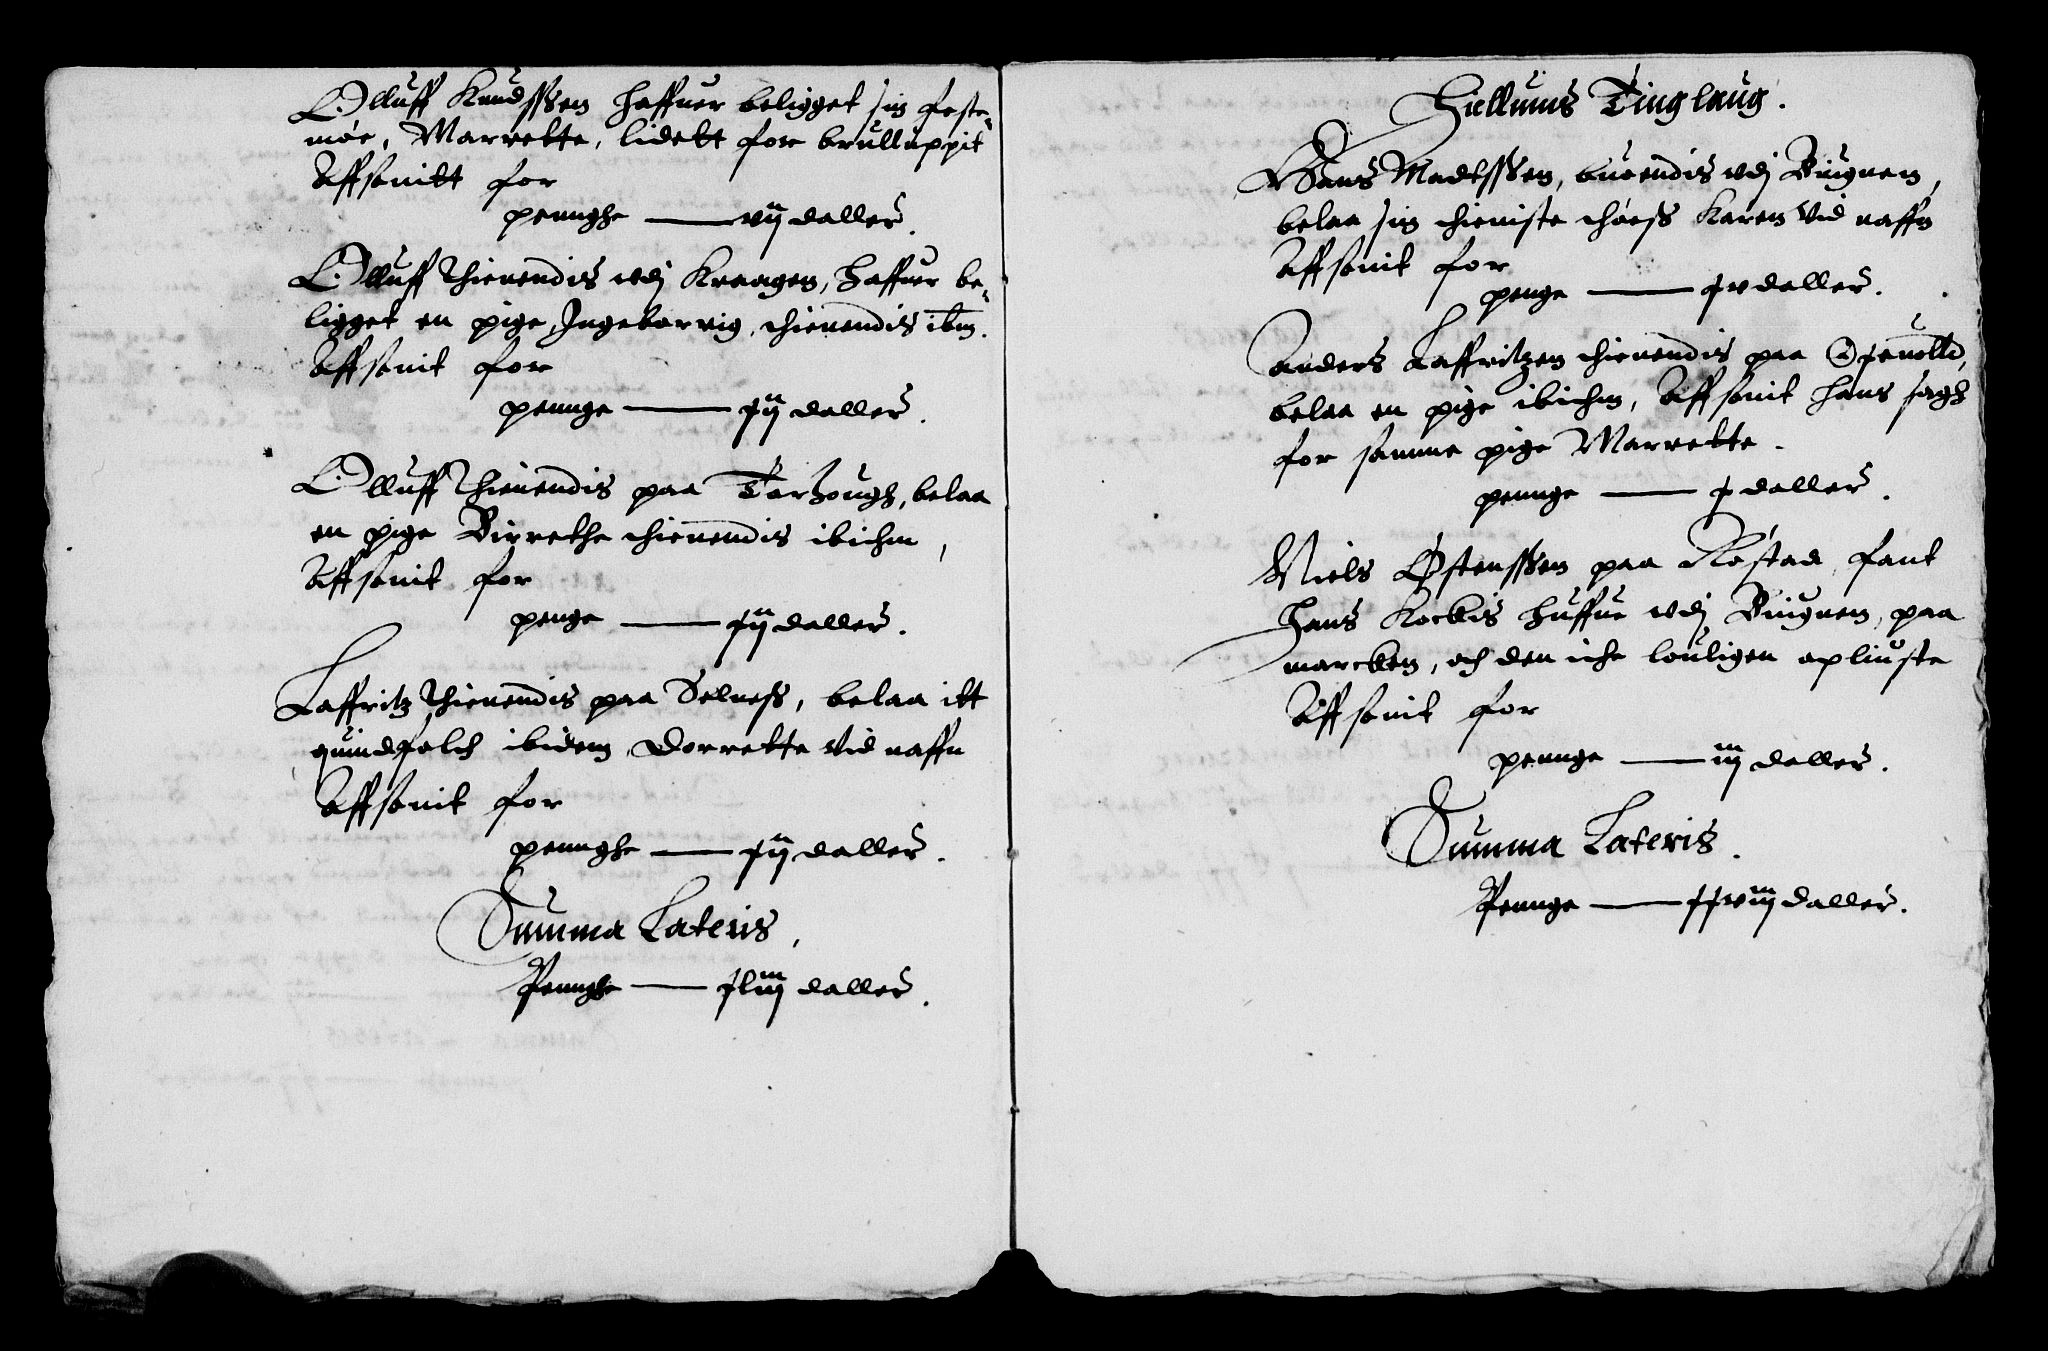 Olluff Knudssen haffuer beligget sin feste-
møe, Marrette, lidett for brulluppit
Affsonitt for
penghe — vij daller.
Olluff thienendis vdj Kraagen, haffuer be-
ligget en pige, Ingeborrig, thienendis ibm.
Affsonit for
pennge — xij daller.
Olluff thienendis paa Torhough, belaa
en pige Birrethe thienendis ibidm,
Affsonit for
penge — xij daller.
Laffritz thienendis paa Selness, belaa itt
quindfolch ibidem Dorrette ved naffn
Affsonit for
pennghe — xij daller.
Summa Lateris,
Pennghe — xliij daller.
Hiellums Tinglaug.
Hans Madtssen, buendis vdj Biugnen,
belaa sin thieniste thøess Karen ved naffn
Affsonit for
penge — xv daller.
Anders Laffritzen thienendis paa
belaa en pige ibidm, Affsonit hans sagh
for samme pige Marrette.
pennge — x daller.
Niels Østenssen paa Røstad fant
Hans Kockis huffue vdj Biugnen, paa
marcken, och den iche louligen opliuste
Affsonit for
pennge — iij daller.
Summa Lateris.
Pennge — xxviij daller.